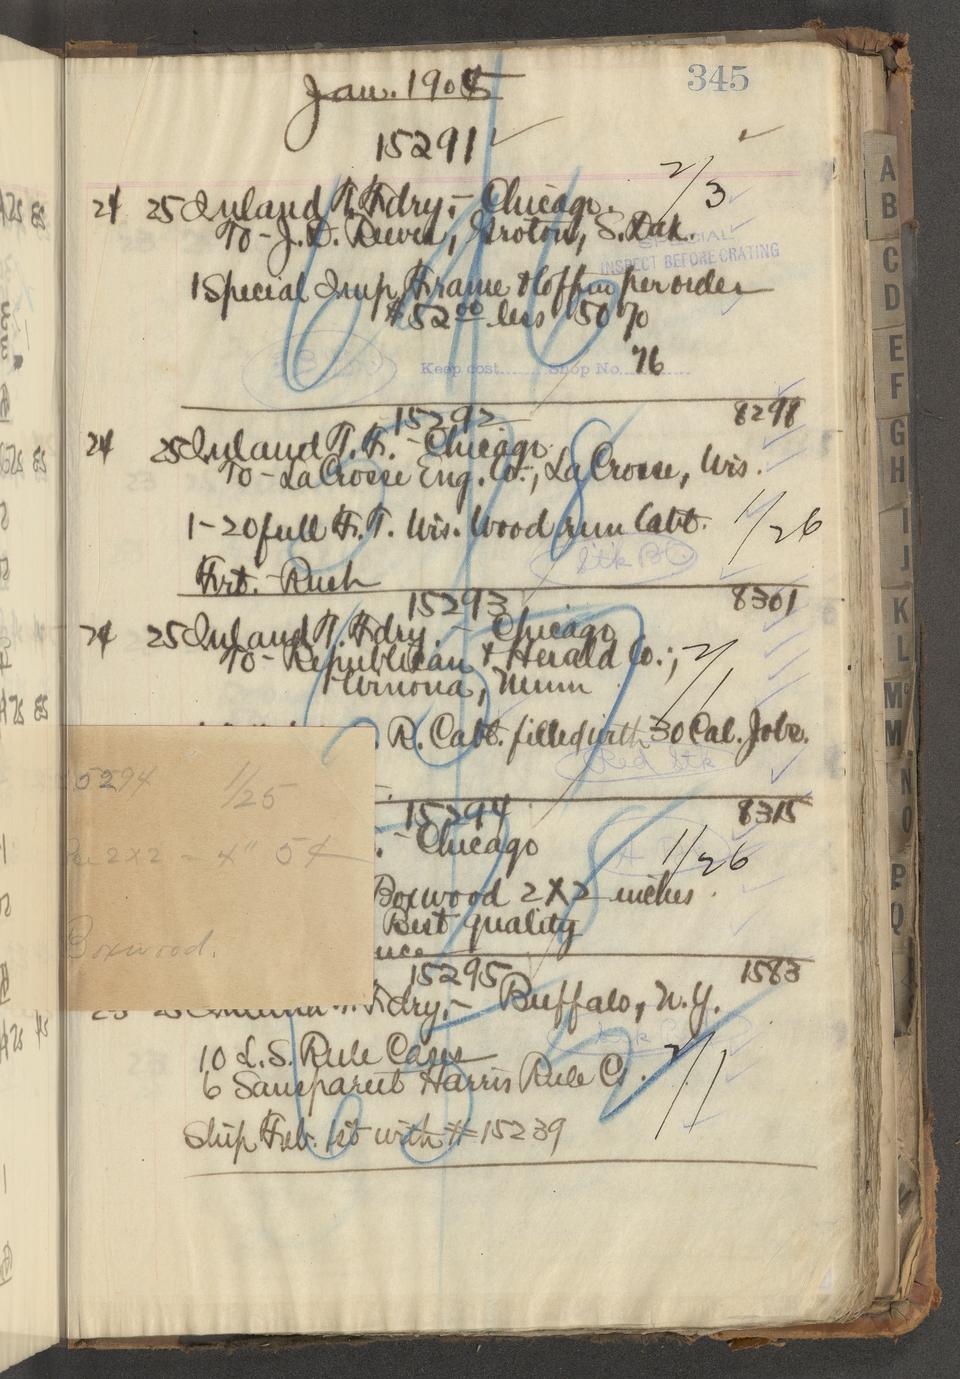 345
Jan. 1905
15291
24 25 Inland T. Fdry, - Chicago. 2/3
To - J. D. Reeves, Groton, S. Dak.
SPECIAL
INSPECT BEFORE CRATING
1 Special Imp, Frame & Coffin per order
$52 00 less 50 %
Keep cost...... Shop No. 76
15292 8298
24 25 Inland T. F. - Chicago
To - LaCrosse Eng. Co., LaCrosse, Wis.
1 - 20 full F. T. Wis. Wood run Cabt. 1/26
Stk
Frt. - Rush
15293 8301
24 25 Inland T. Fdry. - Chicago
To - Republican & Herald Co.; 2/1
Winona, Minn
R. Cabt. filled with 30 Cal. Jobs.
Red Stk
15294 1/25
2 x 2 - 4" 5¢
Boxwood.
15294 8315
. - Chicago 1/26
Boxwood 2 X 2 inches
Best quality
15295 1583
25 25 Inland T. Fdry, - Buffalo, N.Y.
10 L. S. Rule Cases 2/1
6 Sanspareil Harris Rule Cs.
Ship Feb. 1st with # 15239
A
B
C
D
E
F
G
H
I
J
K
L
Mc
M
N
O
P
Q